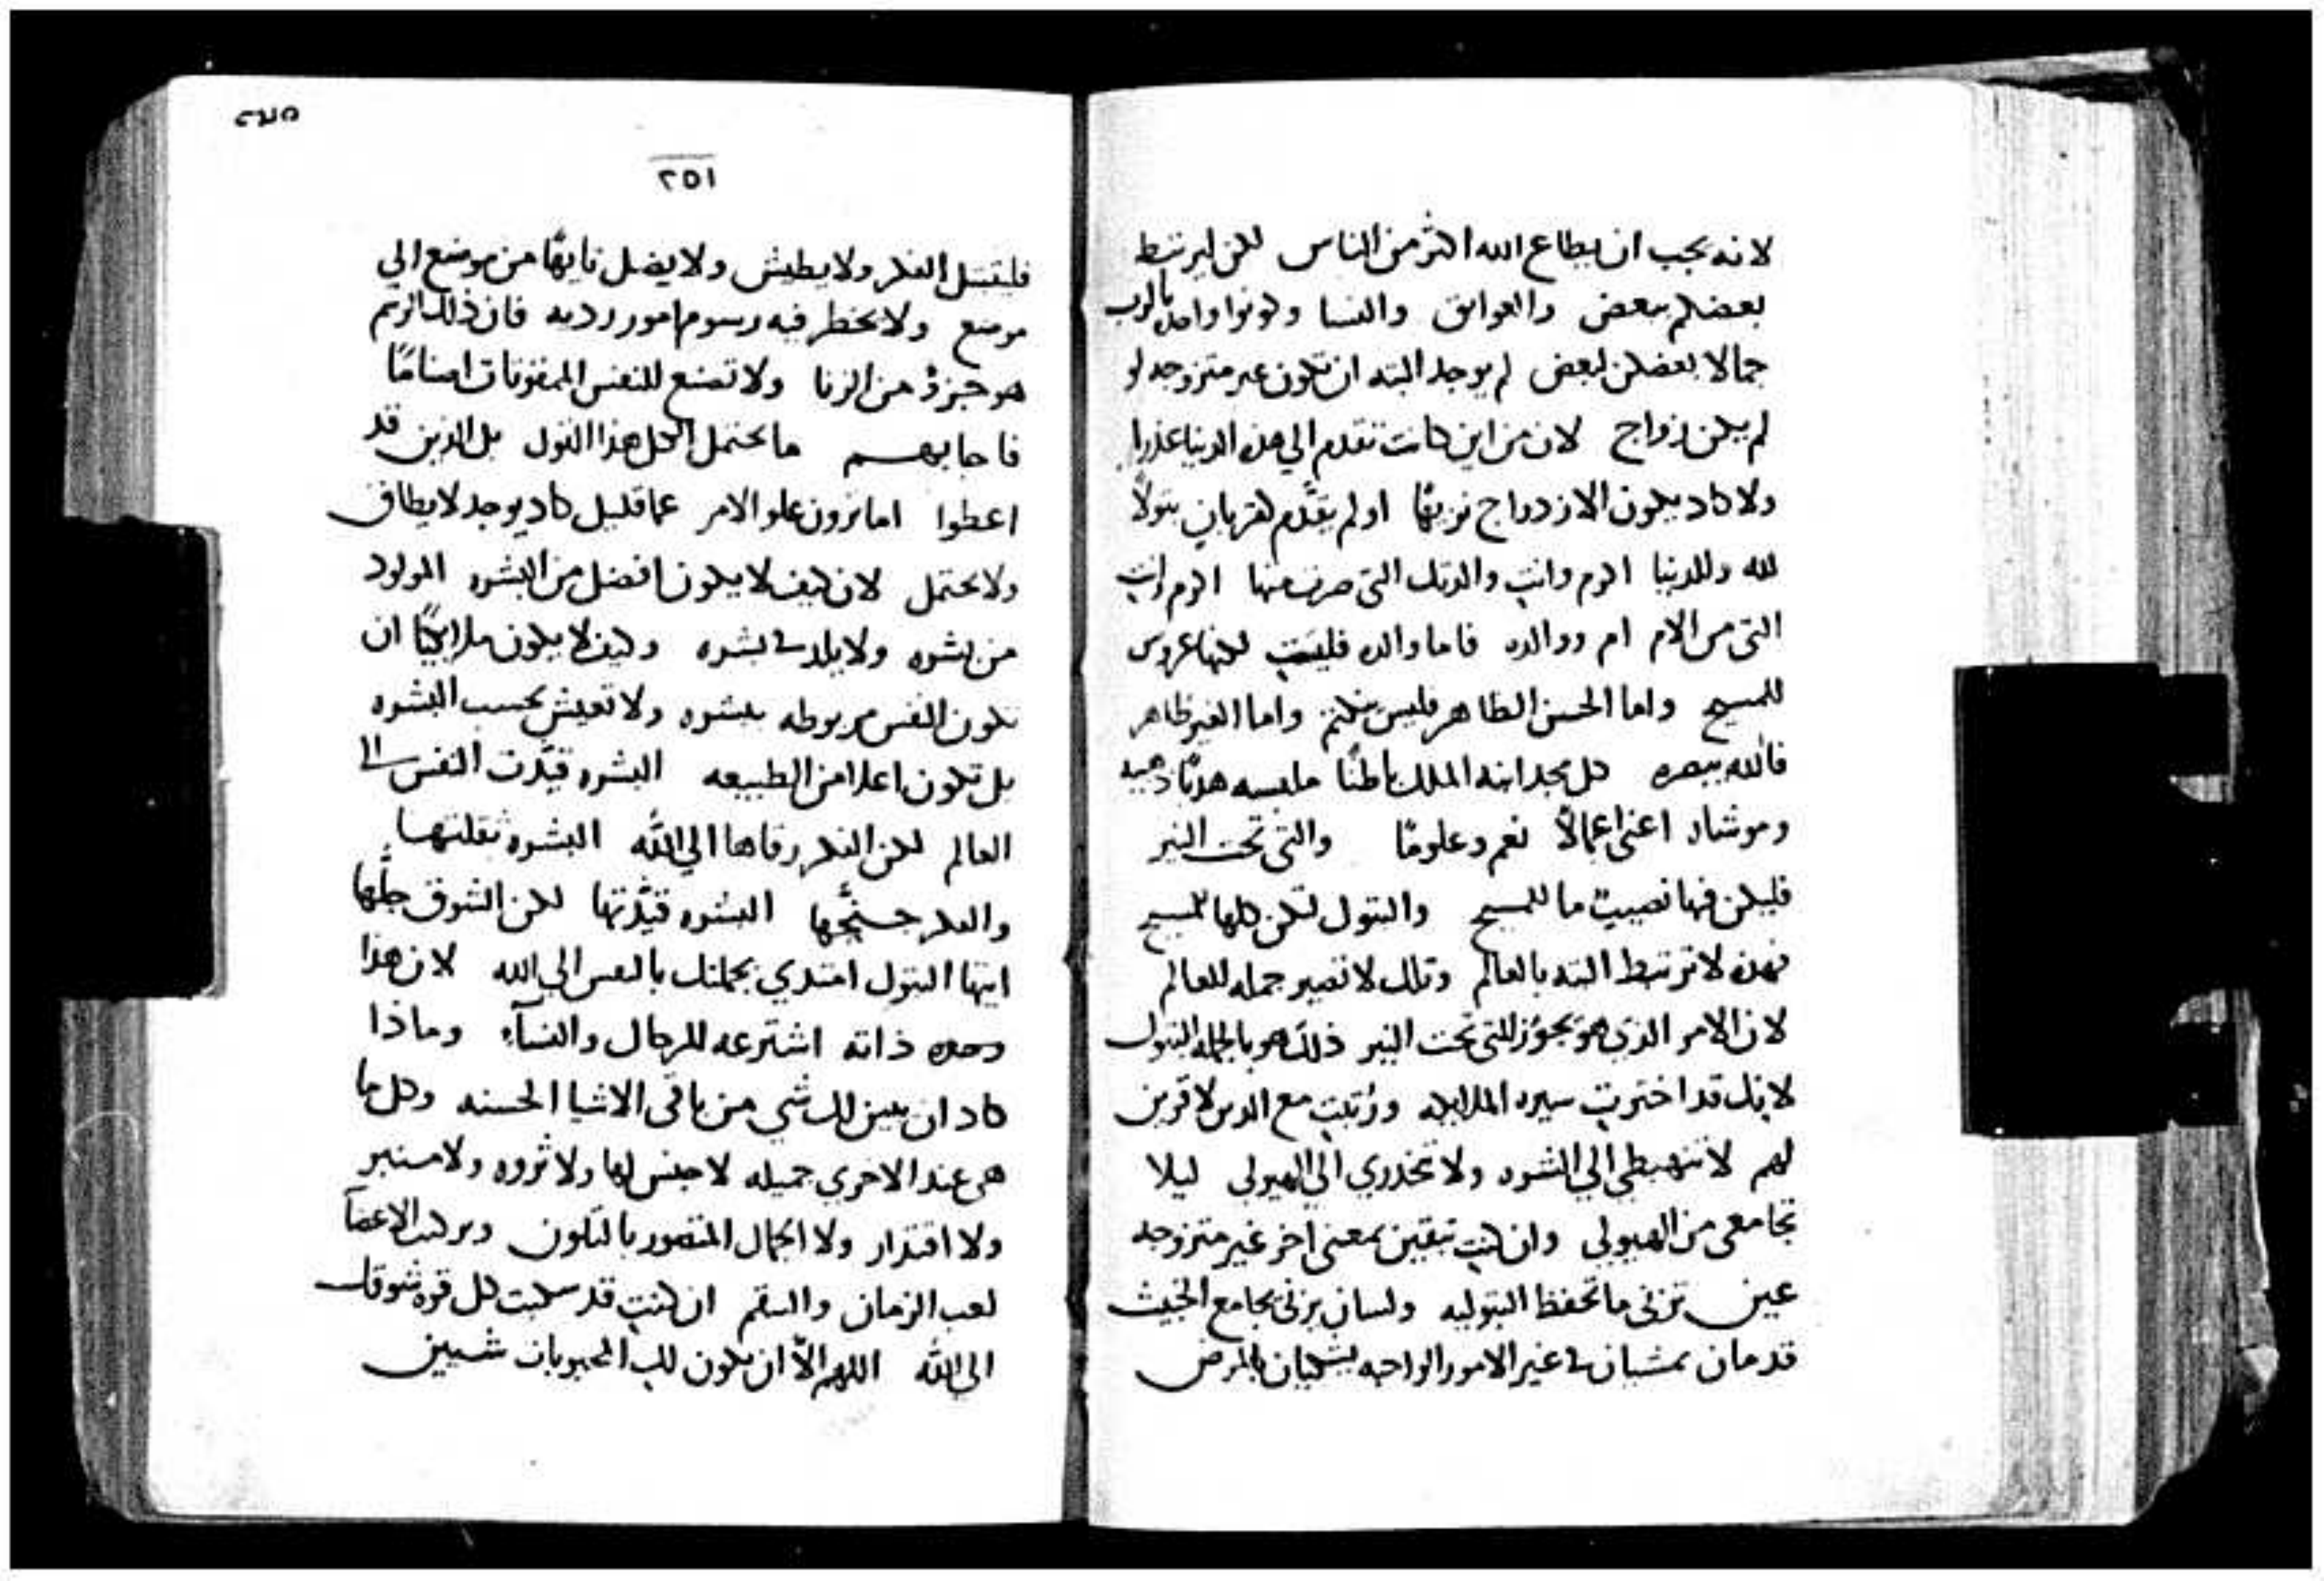 لانه يجب ان يطاع الله اكثر من الناس لكن ليرتبط
بعضكم ببعض والعواتق والنسا وكونوا واحدًا بالرب
جمالا بعضكن لبعض لم يوجد البته ان تكون غير متزوجه لو
لم يكن زواج لان من اين كانت تتقدم الي هذه الدنيا عذرا
ولا كاد يكون الازدواج نزيهًا او لم يقدّم قربان بتولاً
لله وللدنيا اكرم وانتِ والدتك التي صرتِ منها اكرم وانتِ
التي من الام ام ووالده فاما والده فليستِ لكنها عروس
للمسيح واما الحسن الظاهر فليس منكتم واما الغير ظاهر
فالله يبصره كل مجد ابنه الملك باطنًا ملبسه هدبًا ذهبيه
وموشاه اعني اعمالاً نعم وعلومًا والتي تحت النير
فليكن فيها نصيبٌ ما للمسيح والبتول لتكن كلها للمسيح
فهذه لا ترتبط البته بالعالم وتلك لا تصير جمله للعالم
لان الامر الذي هو يجوز للتي تحت النير ذلك هو بالجمله للبتول
لانك قد اخترتِ سيره الملايكه ورُتبتِ مع الذين لا قرين
لهم لا تنهبطي الي البشره ولا تنحدري الي الهيولي ليلا
تجامعي من الهيولي وان كنتِ تبقين بمعني اخر غير متزوجه
عين تزني ما تحفظ البتوليه ولسان يزني يجامع الخبيث
قدمان تمشيان في غير الامور الواجبه يشكيان بالمرض
٢٧٥
٢٥١
فليبتل الفكر ولا يطيش ولا يضل تايهًا من موضع الي
موضع ولا يخطر فيه رسوم امور رديه فان ذلك الرسم
هو جزءٌ من الزنا ولا تصنع للنفس الممقوتات اصنامًا
فاجابهم ما يحتمل الكل هذا القول بل الذين قد
اعطوا اما ترون علو الامر عما قليل كاد يوجد لا يطاق
ولا يحتمل لان كيف لا يكون افضل من البشره المولود
من بشره ولا يلد في بشره وكيف لا يكون ملايكيًا ان
تكون النفس مربوطه ببشره ولا تعيش بحسب البشره
بل تكون اعلا من الطبيعه البشره قيّدت النفس الي
العالم لكن الفكر رقاها الي الله البشره ثقلتها
والفكر جنّحها البشره قيّدتها لكن الشوق حلّها
ايتها البتول امتدي بجملتك بالنفس الي الله لان هذا
وحده ذاته اشترعه للرجال والنسآء وماذا
كاد ان يبين لك شي من باقي الاشيا الحسنه وكل ما
هي عند الاخري جميله لا جنس لها ولا ثروه ولا منبر
ولا اقتدار ولا الجمال المتصور بالتلون وتركيب الاعضآ
لعب الزمان والسقم ان كنتِ قد سكبت كل قوه شوقك
الي الله اللهم الاّ ان يكون لكِ المحبوبان شبيين